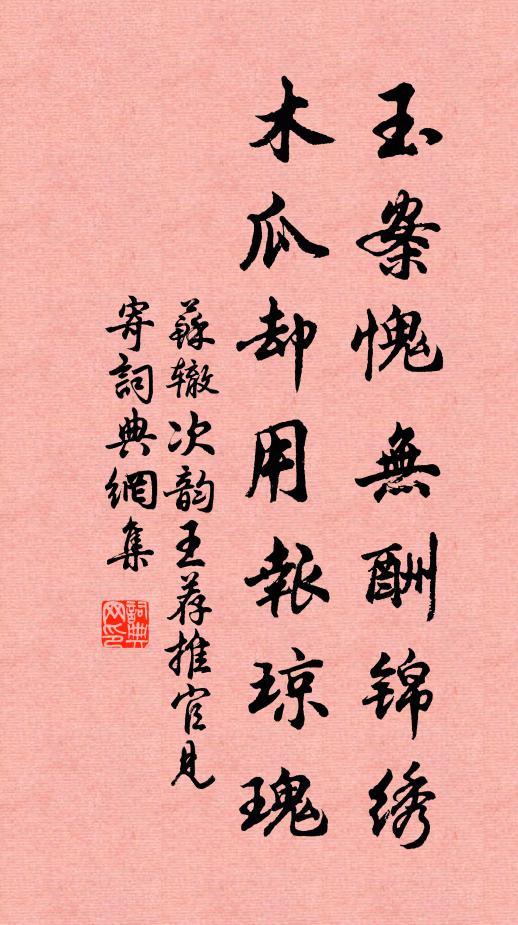 玉案愧無酬锦绣
木瓜却用報琼瑰
蘇辙次韵王荐推官見
寄詞典網集
詞典网印